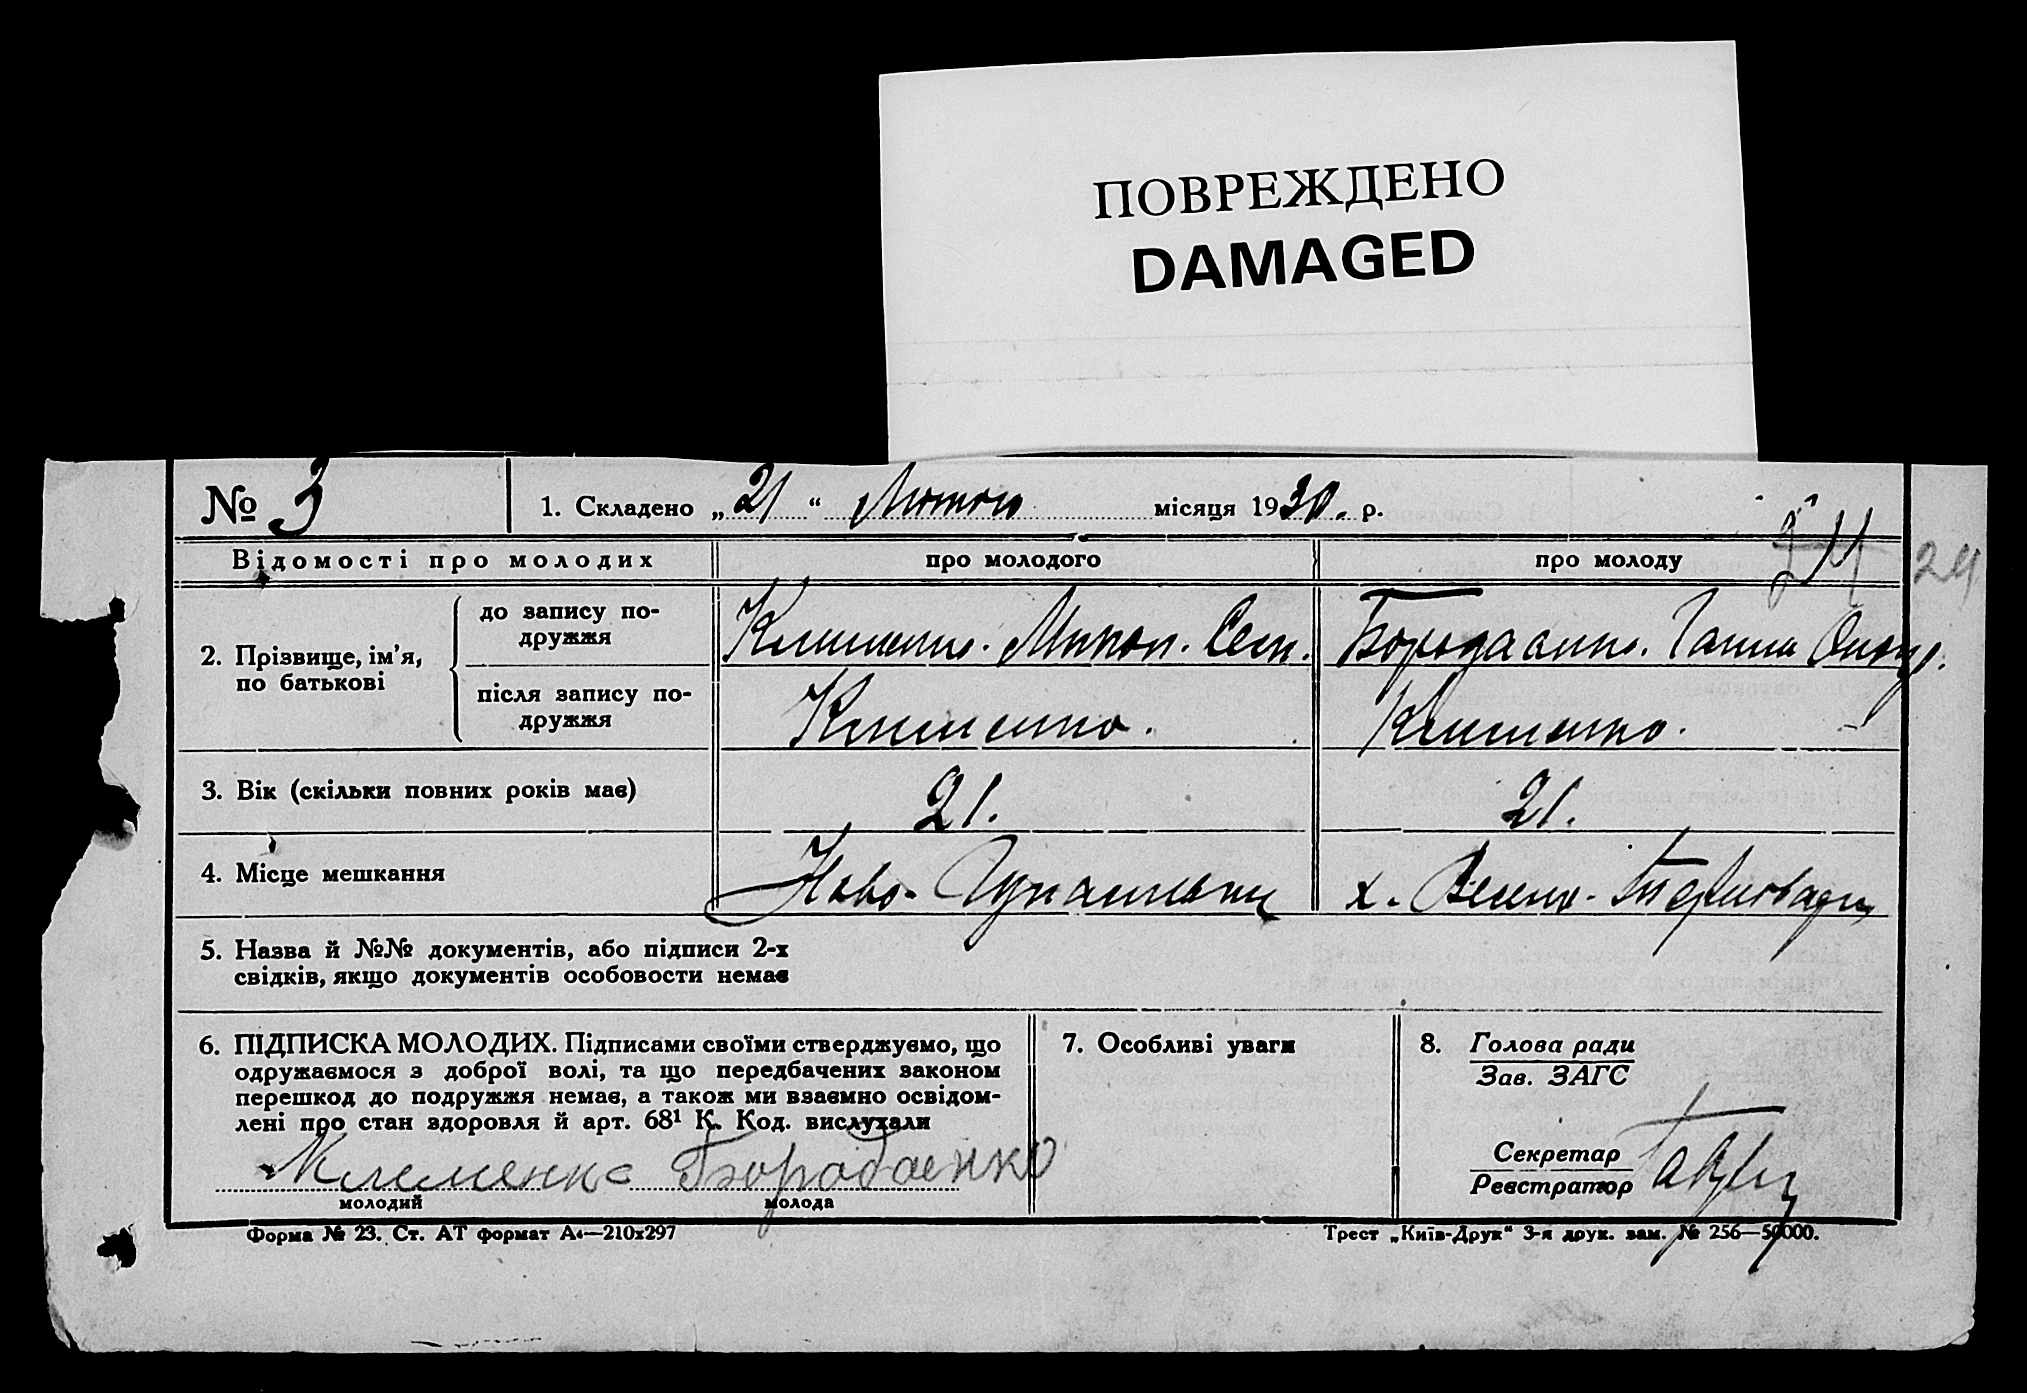 ПОВРЕЖДЕНО
DAMAGED
№ 3
1. Складено „21“ Лютого місяця 1930. р.
24
24
Відомості про молодих
про молодого
про молоду
2. Прізвище, ім’я, по батькові
до запису подружжя
Клименко. Микол. Сем.
Бородаенко. Ганна
після запису подружжя
Клименко.
Клименко.
3. Вік (скільки повних років має)
21.
21.
4. Місце мешкання
Ново-
х. Велико-
5. Назва й №№ документів, або підписи 2-х
свідків, якщо документів особовости немає
6. ПІДПИСКА МОЛОДИХ. Підписами своїми стверджуємо, що
одружаємося з доброї волі, та що передбачених законом
перешкод до подружжя немає, а також ми взаємно освідом-
лені про стан здоровля й арт. 68¹ К. Код. вислухали
Клеменко Бородаенко
молодий
молода
7. Особливі уваги
8. Голова ради
Зав. ЗАГС
Секретар
Реєстратор
Форма № 23. Ст. АТ формат А4—210х297
Трест „Київ-Друк“ 3-я друк. зам. № 256—50000.